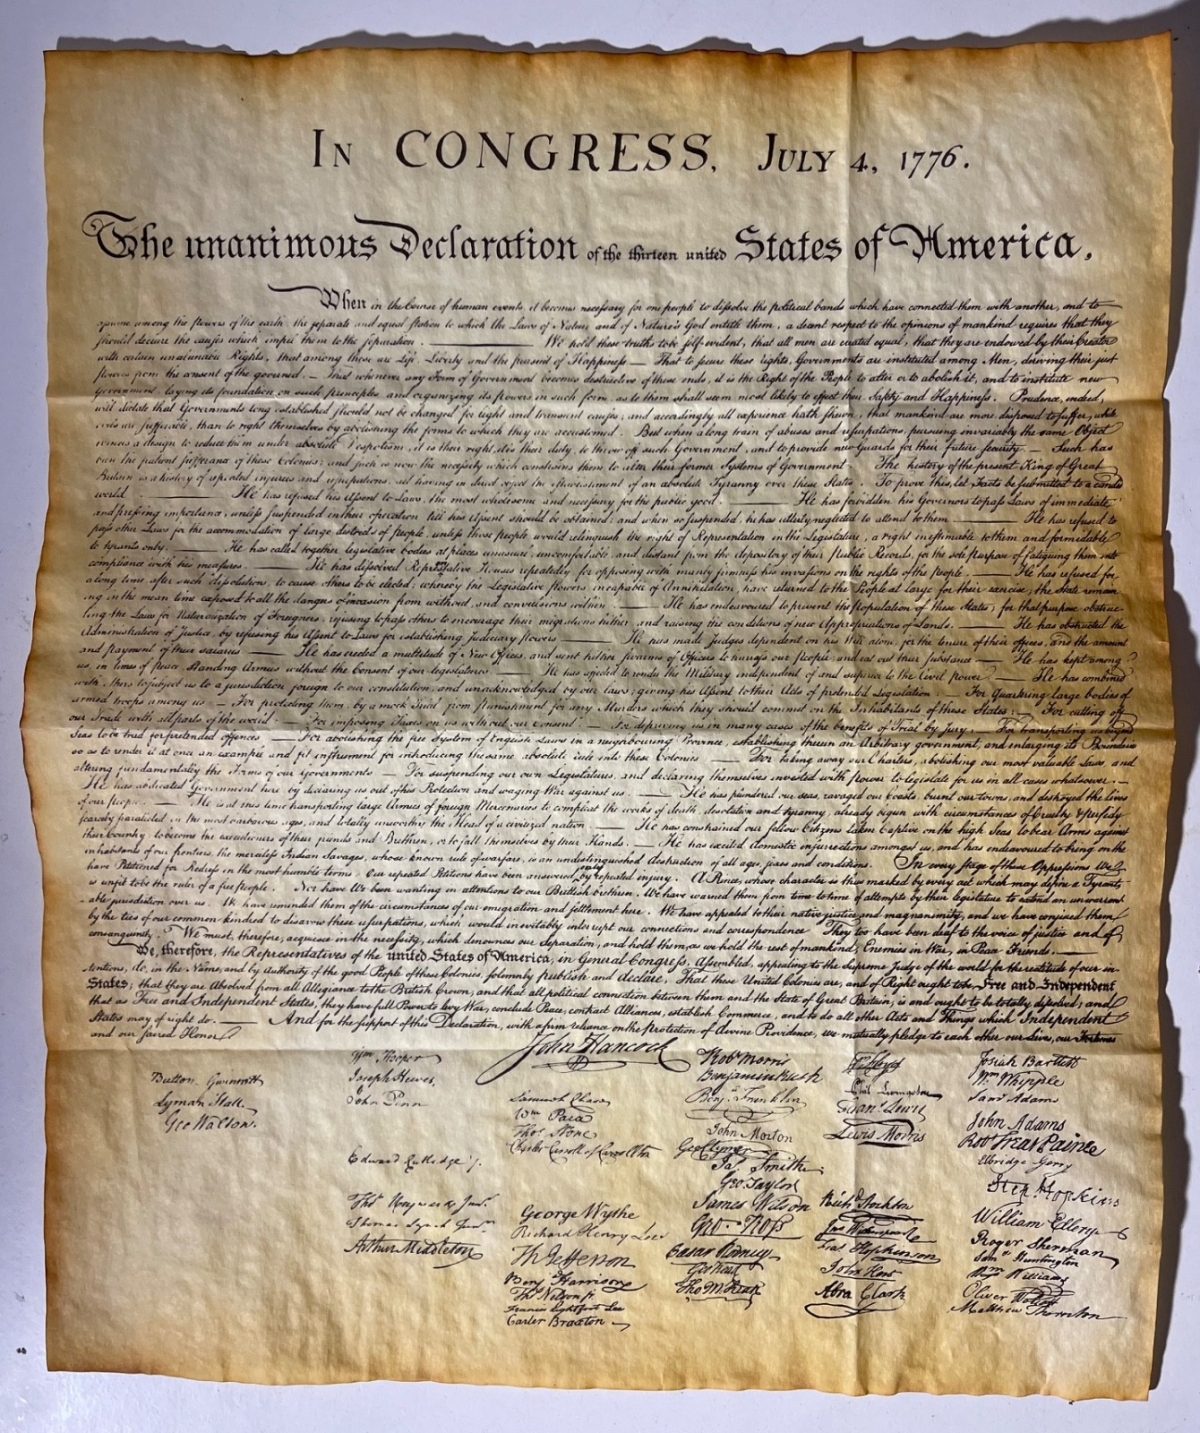 In CONGRESS, July 4, 1776.
The unanimous Declaration of the thirteen united States of America,
When in the Course of human events, it becomes necessary for one people to dissolve the political bands which have connected them with another, and to
assume among the powers of the earth, the separate and equal station to which the Laws of Nature and of Nature's God entitle them, a decent respect to the opinions of mankind requires that they
should declare the causes which impel them to the separation. We hold these truths to be self-evident, that all men are created equal, that they are endowed by their Creator
with certain unalienable Rights, that among these are Life, Liberty and the pursuit of Happiness.— That to secure these rights, Governments are instituted among Men, deriving their just
powers from the consent of the governed,— That whenever any Form of Government becomes destructive of these ends, it is the Right of the People to alter or to abolish it, and to institute new
Government, laying its foundation on such principles and organizing its powers in such form, as to them shall seem most likely to effect their Safety and Happiness. Prudence, indeed,
will dictate that Governments long established should not be changed for light and transient causes; and accordingly all experience hath shewn, that mankind are more disposed to suffer, while
evils are sufferable, than to right themselves by abolishing the forms to which they are accustomed. But when a long train of abuses and usurpations, pursuing invariably the same Object
evinces a design to reduce them under absolute Despotism, it is their right, it is their duty, to throw off such Government, and to provide new Guards for their future security.— Such has
been the patient sufferance of these Colonies; and such is now the necessity which constrains them to alter their former Systems of Government. The history of the present King of Great
Britain is a history of repeated injuries and usurpations, all having in direct object the establishment of an absolute Tyranny over these States. To prove this, let Facts be submitted to a candid
world. He has refused his Assent to Laws, the most wholesome and necessary for the public good. He has forbidden his Governors to pass Laws of immediate
and pressing importance, unless suspended in their operation till his Assent should be obtained; and when so suspended, he has utterly neglected to attend to them. He has refused to
pass other Laws for the accommodation of large districts of people, unless those people would relinquish the right of Representation in the Legislature, a right inestimable to them and formidable
to tyrants only. He has called together legislative bodies at places unusual, uncomfortable, and distant from the depository of their Public Records, for the sole purpose of fatiguing them into
compliance with his measures. He has dissolved Representative Houses repeatedly, for opposing with manly firmness his invasions on the rights of the people. He has refused for
a long time, after such dissolutions, to cause others to be elected; whereby the Legislative powers, incapable of Annihilation, have returned to the People at large for their exercise; the State remain
ing in the mean time exposed to all the dangers of invasion from without, and convulsions within. He has endeavoured to prevent the population of these States; for that purpose obstruc
ting the Laws for Naturalization of Foreigners; refusing to pass others to encourage their migrations hither, and raising the conditions of new Appropriations of Lands. He has obstructed the
Administration of Justice, by refusing his Assent to Laws for establishing Judiciary powers. He has made Judges dependent on his Will alone, for the tenure of their offices, and the amount
and payment of their salaries. He has erected a multitude of New Offices, and sent hither swarms of Officers to harass our people, and eat out their substance. He has kept among
us, in times of peace, Standing Armies without the Consent of our legislatures. He has affected to render the Military independent of and superior to the Civil power. He has combined
with others to subject us to a jurisdiction foreign to our constitution, and unacknowledged by our laws; giving his Assent to their Acts of pretended Legislation: For quartering large bodies of
armed troops among us: For protecting them, by a mock Trial from punishment for any Murders which they should commit on the Inhabitants of these States: For cutting off
our Trade with all parts of the world: For imposing Taxes on us without our Consent: For depriving us in many cases, of the benefits of Trial by jury: For transporting us beyond
Seas to be tried for pretended offences: For abolishing the free System of English Laws in a neighbouring Province, establishing therein an Arbitrary government, and enlarging its Boundaries
so as to render it at once an example and fit instrument for introducing the same absolute rule into these Colonies: For taking away our Charters, abolishing our most valuable Laws, and
altering fundamentally the Forms of our Governments: For suspending our own Legislatures, and declaring themselves invested with power to legislate for us in all cases whatsoever.—
He has abdicated Government here, by declaring us out of his Protection and waging War against us. He has plundered our seas, ravaged our Coasts, burnt our towns, and destroyed the lives
of our people. He is at this time transporting large Armies of foreign Mercenaries to compleat the works of death, desolation and tyranny, already begun with circumstances of Cruelty & perfidy
scarcely paralleled in the most barbarous ages, and totally unworthy the Head of a civilized nation. He has constrained our fellow Citizens taken Captive on the high Seas to bear Arms against
their Country, to become the executioners of their friends and Brethren, or to fall themselves by their Hands. He has excited domestic insurrections amongst us, and has endeavoured to bring on the
inhabitants of our frontiers, the merciless Indian Savages, whose known rule of warfare, is an undistinguished destruction of all ages, sexes and conditions. In every stage of these Oppressions We
have Petitioned for Redress in the most humble terms: Our repeated Petitions have been answered only by repeated injury. A Prince, whose character is thus marked by every act which may define a Tyrant,
is unfit to be the ruler of a free people. Nor have We been wanting in attentions to our Brittish brethren. We have warned them from time to time of attempts by their legislature to extend an unwarrant
able jurisdiction over us. We have reminded them of the circumstances of our emigration and settlement here. We have appealed to their native justice and magnanimity, and we have conjured them
by the ties of our common kindred to disavow these usurpations, which, would inevitably interrupt our connections and correspondence. They too have been deaf to the voice of justice and of
consanguinity. We must, therefore, acquiesce in the necessity, which denounces our Separation, and hold them, as we hold the rest of mankind, Enemies in War, in Peace Friends.
We, therefore, the Representatives of the united States of America, in General Congress, Assembled, appealing to the Supreme Judge of the world for the rectitude of our in-
tentions, do, in the Name, and by Authority of the good People of these Colonies, solemnly publish and declare, That these United Colonies are, and of Right ought to be Free and Independent
States; that they are Absolved from all Allegiance to the British Crown, and that all political connection between them and the State of Great Britain, is and ought to be totally dissolved; and
that as Free and Independent States, they have full Power to levy War, conclude Peace, contract Alliances, establish Commerce, and to do all other Acts and Things which Independent
States may of right do. And for the support of this Declaration, with a firm reliance on the Protection of divine Providence, we mutually pledge to each other our Lives, our Fortunes
and our sacred Honor.
John Hancock
Button Gwinnett
Lyman Hall
Geo Walton.
Wm Hooper
Joseph Hewes,
John Penn
Edward Rutledge /.
Thos Heyward Junr.
Thomas Lynch Junr.
Arthur Middleton
Samuel Chase
Wm Paca
Thos Stone
Charles Carroll of Carrollton
George Wythe
Richard Henry Lee
Th Jefferson
Benj Harrison
Thos Nelson jr.
Francis Lightfoot Lee
Carter Braxton
Robt Morris
Benjamin Rush
Benj. Franklin
John Morton
Geo Clymer
Jas. Smith
Geo. Taylor
James Wilson
Geo. Ross
Caesar Rodney
Geo Read
Tho M:Kean
Wm Floyd
Phil. Livingston
Frans. Lewis
Lewis Morris
Richd. Stockton
Jno Witherspoon
Fras. Hopkinson
John Hart
Abra Clark
Josiah Bartlett
Wm Whipple
Saml Adams
John Adams
Robt Treat Paine
Elbridge Gerry
Step. Hopkins
William Ellery
Roger Sherman
Saml Huntington
Wm Williams
Oliver Wolcott
Matthew Thornton